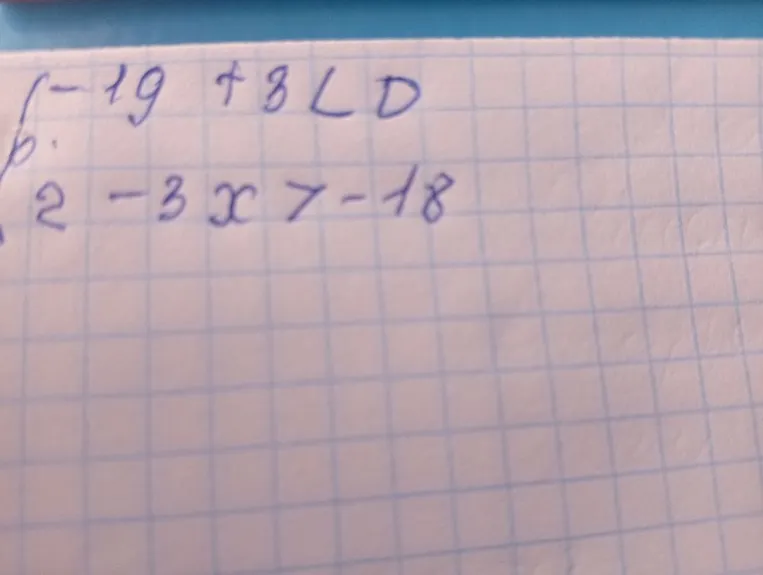 {-19 + 3 < 0
2 - 3x > -18